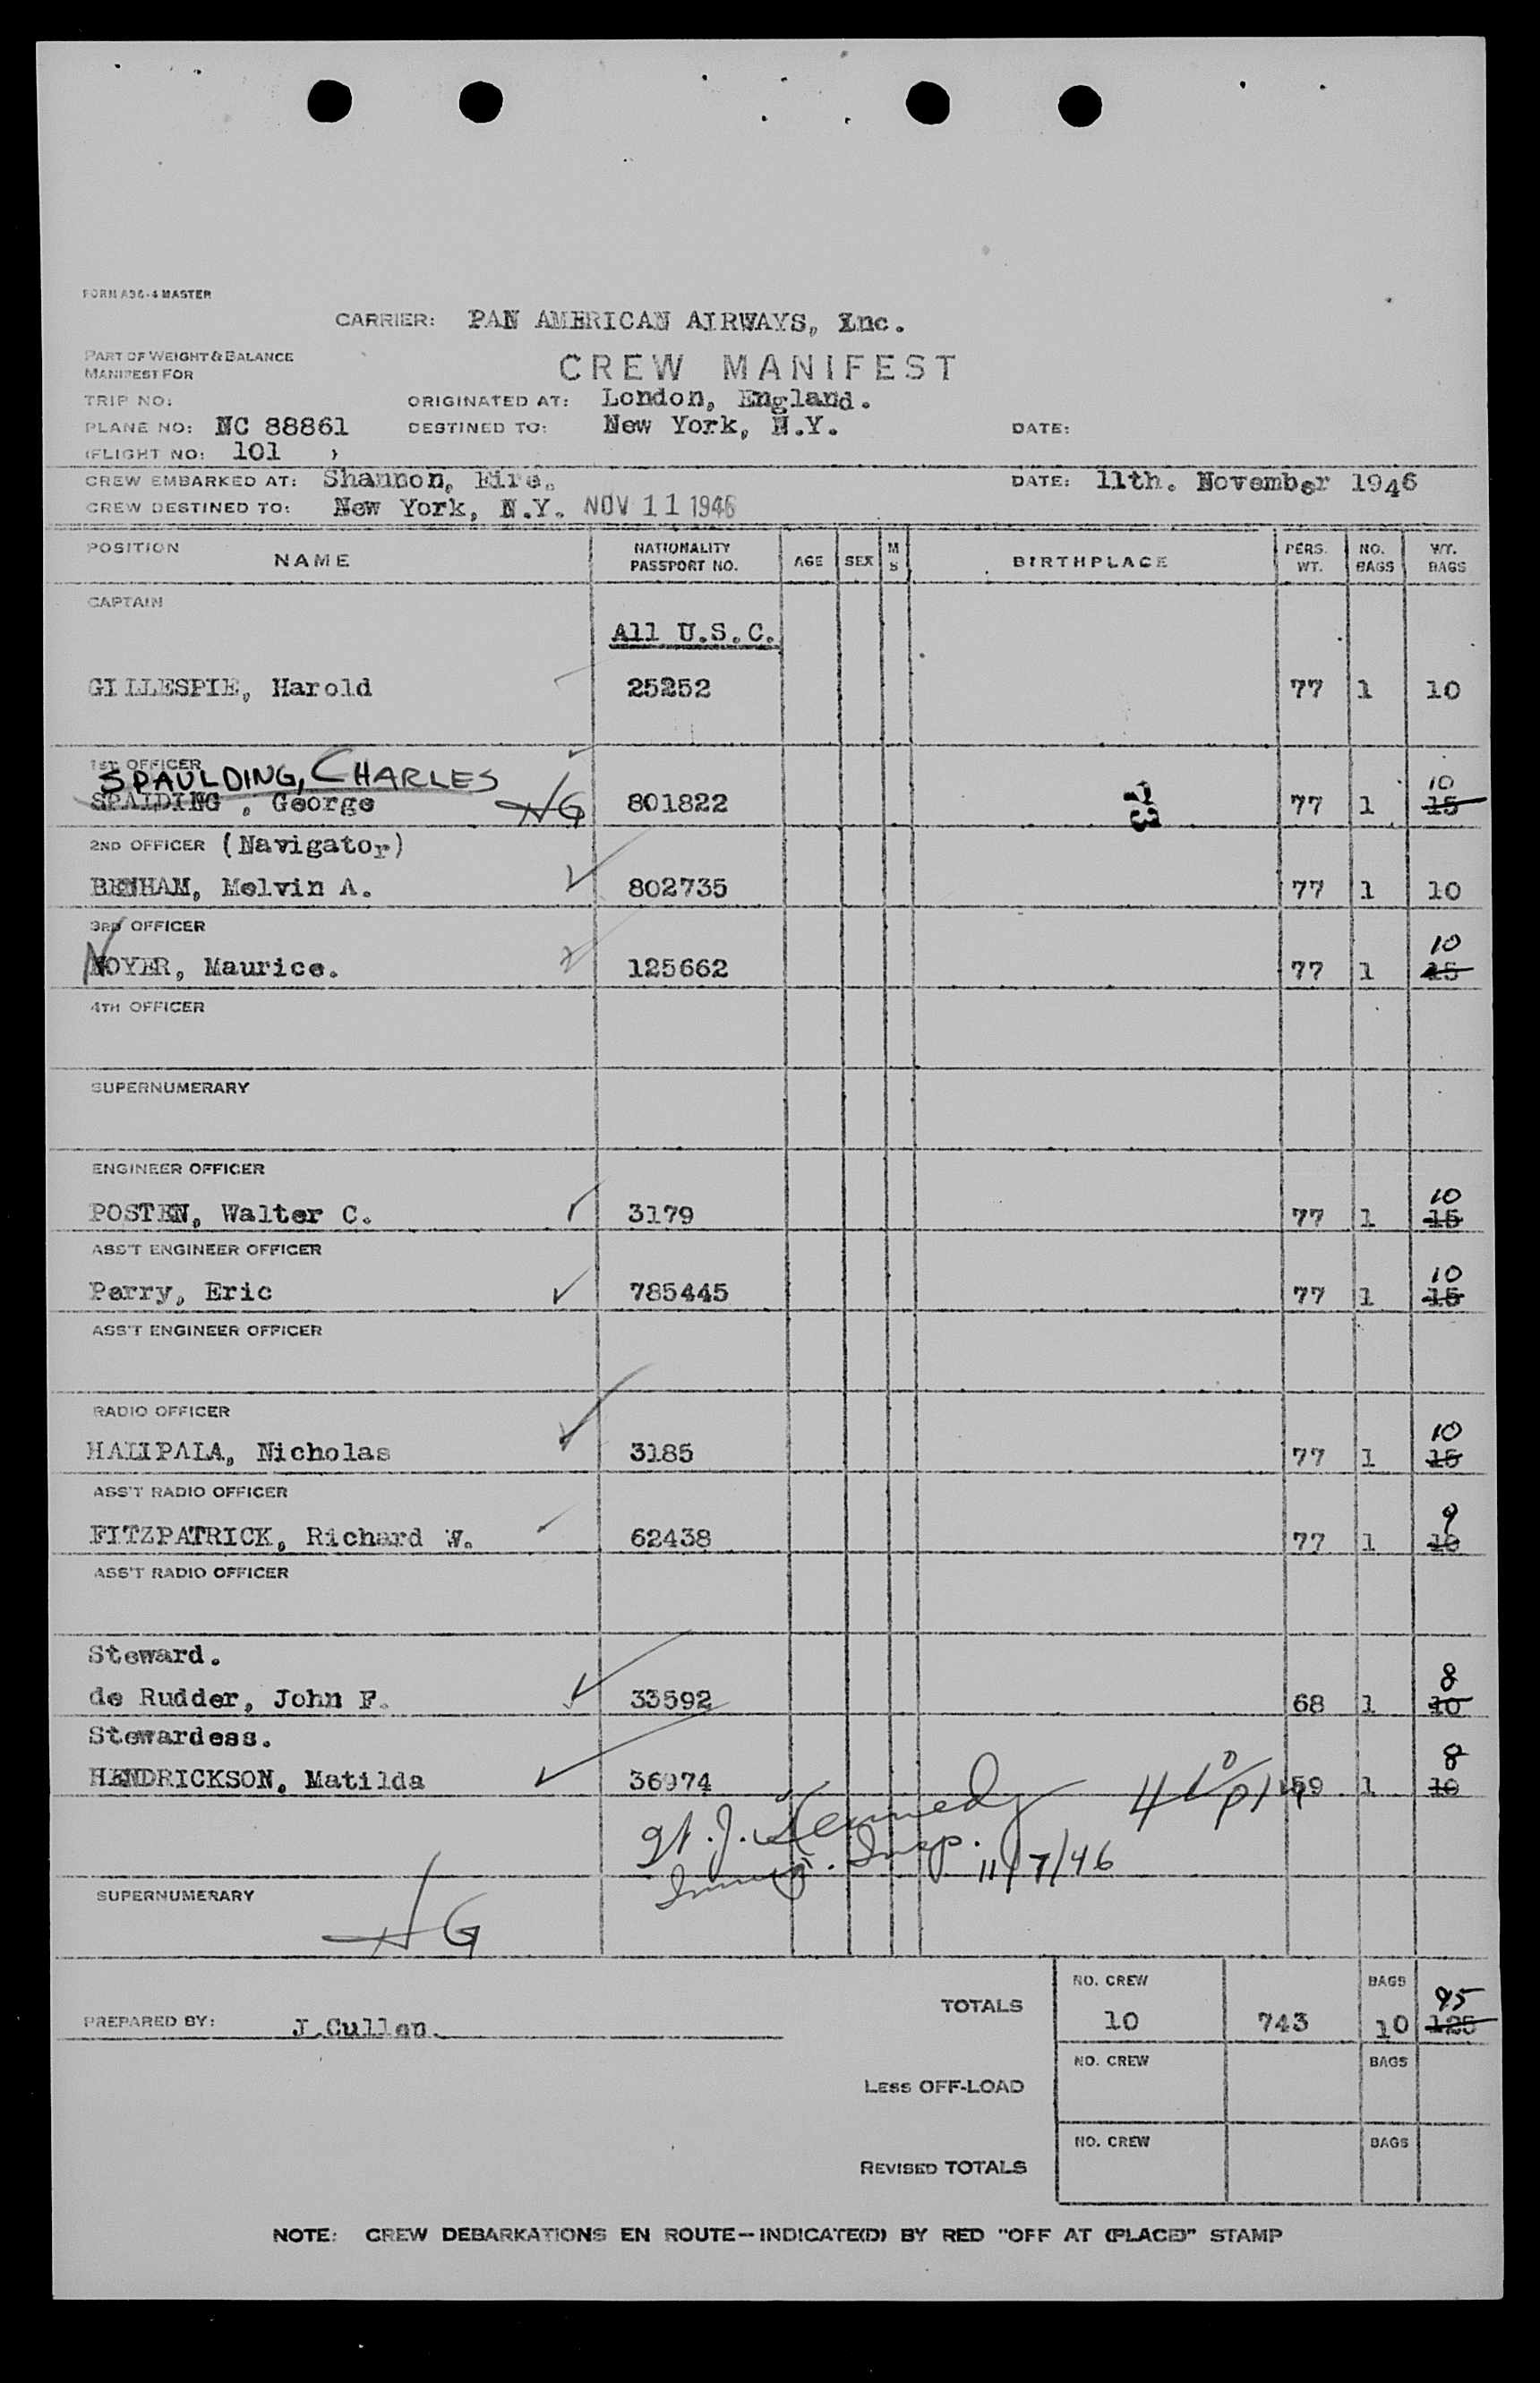 FORM A36-4 MASTER
CARRIER: PAN AMERICAN AIRWAYS, Inc.
PART OF WEIGHT & BALANCE
MANIFEST FOR
CREW MANIFEST
TRIP NO: ORIGINATED AT: London, England.
PLANE NO: NC 88861 DESTINED TO: New York, N.Y. DATE:
(FLIGHT NO: 101 )
CREW EMBARKED AT: Shannon, Eire. DATE: 11th. November 1946
CREW DESTINED TO: New York, N.Y. NOV 11 1946
POSITION NAME NATIONALITY PASSPORT NO. AGE SEX M S BIRTHPLACE PERS. WT. NO. BAGS WT. BAGS
CAPTAIN
All U.S.C.
GILLESPIE, Harold 25252 77 1 10
1ST OFFICER
SPAULDING, CHARLES 10
SPALDING , George HG 801822 77 1 15
2ND OFFICER (Navigator)
BENHAM, Melvin A. 802735 77 1 10
3RD OFFICER
10
NOYER, Maurice. 125662 77 1 15
4TH OFFICER
SUPERNUMERARY
ENGINEER OFFICER
10
POSTEN, Walter C. 3179 77 1 15
ASS'T ENGINEER OFFICER
10
Perry, Eric 785445 77 1 15
ASS'T ENGINEER OFFICER
RADIO OFFICER
10
HALIPALA, Nicholas 3185 77 1 15
ASS'T RADIO OFFICER
9
FITZPATRICK, Richard W. 62438 77 1 10
ASS'T RADIO OFFICER
Steward.
8
de Rudder, John F. 33592 68 1 10
Stewardess.
8
HENDRICKSON, Matilda 36974 59 1 10
Kennedy
Immig. Insp. 11/7/46
SUPERNUMERARY
HG
NO. CREW BAGS 95
TOTALS 10 743 10 125
PREPARED BY: J.Cullen.
NO. CREW BAGS
LESS OFF-LOAD
NO. CREW BAGS
REVISED TOTALS
NOTE: CREW DEBARKATIONS EN ROUTE—INDICATE(D) BY RED "OFF AT (PLACE)" STAMP